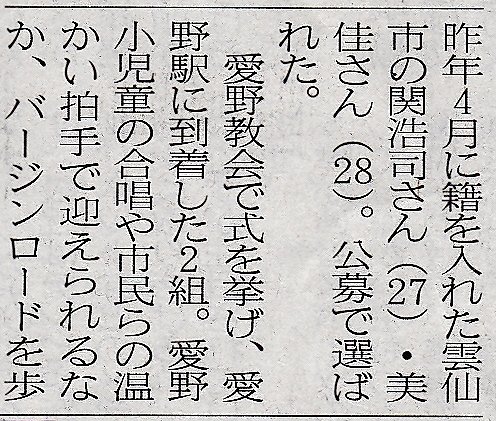 昨年4月に籍を入れた雲仙
市の関浩司さん(27)・美
佳さん(28)。公募で選ば
れた。
愛野教会で式を挙げ、愛
野駅に到着した2組。愛野
小児童の合唱や市民らの温
かい拍手で迎えられるな
か、バージンロードを歩